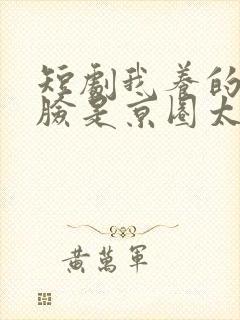 短劇我養的
臉是京圈太
黃萬軍